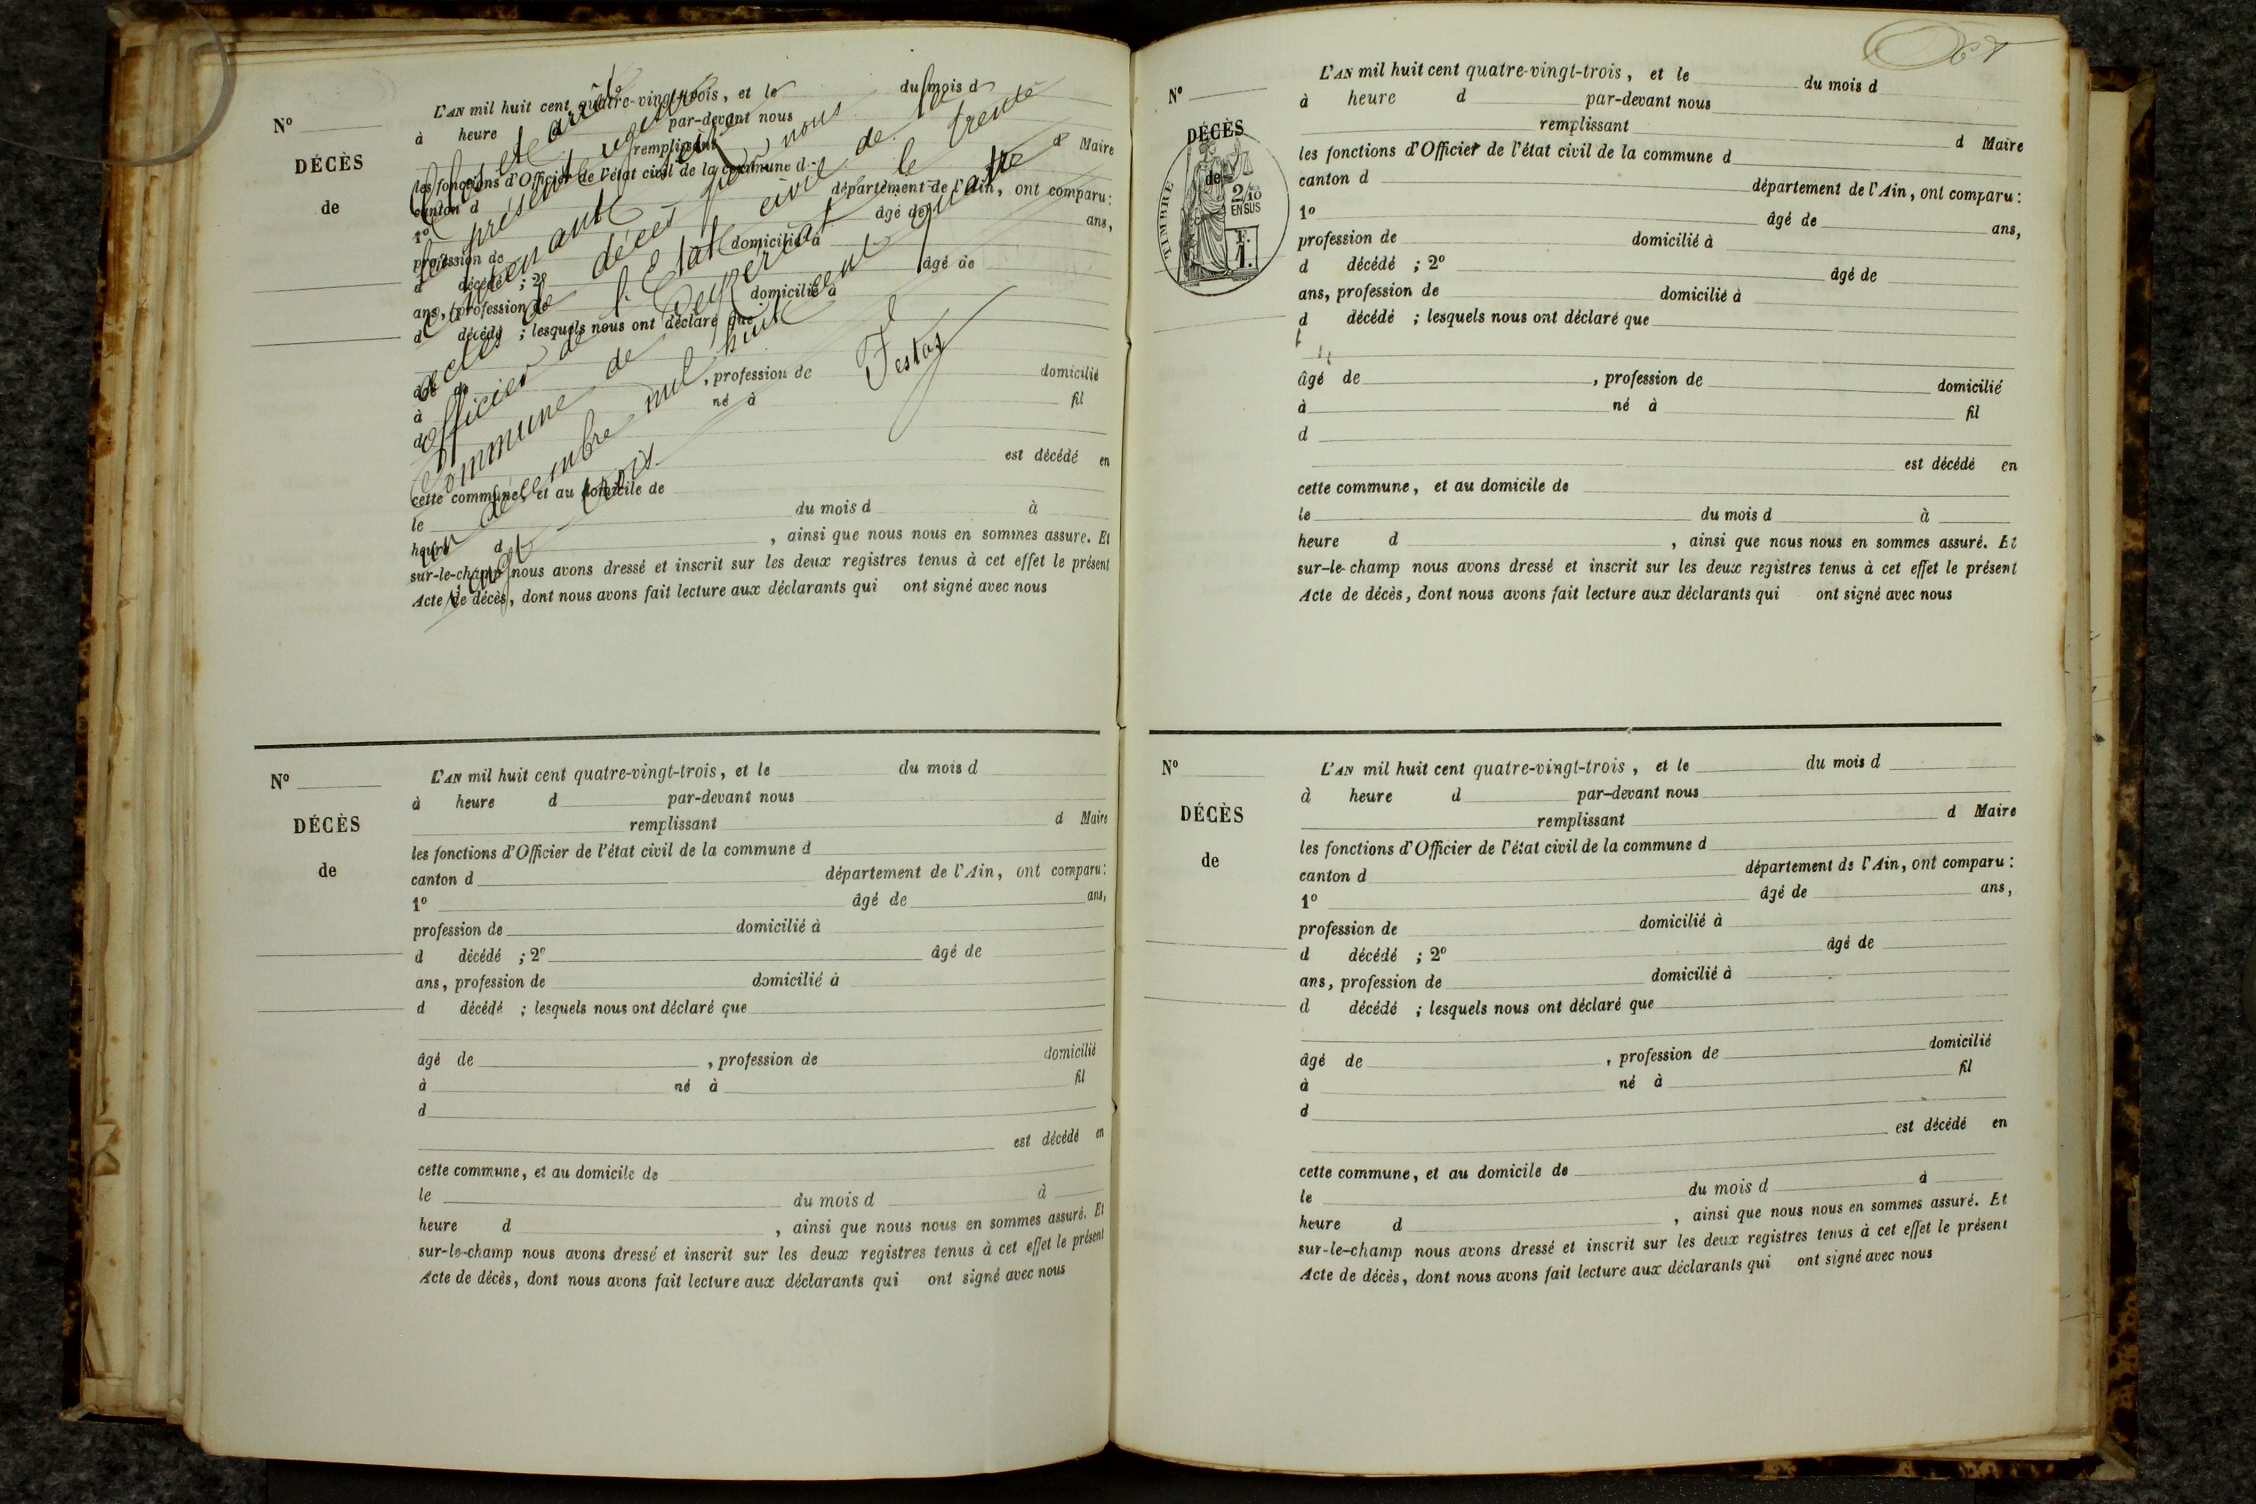 L'AN mil huit cent quatre-vingt-trois, et le du mois d
à heure d par-devant nous
remplissant d Maire
les fonctions d'Officier de l'état civil de la commune d
canton d département de l'Ain, ont comparu:
1º âgé de ans,
profession de domicilié à
d décédé ; 2º âgé de
ans, profession de domicilié à
d décédé ; lesquels nous ont déclaré que
âgé de , profession de domicilié
à né à fil
d
est décédé en
cette commune, et au domicile de
le du mois d à
heure d , ainsi que nous nous en sommes assuré. Et
sur-le-champ nous avons dressé et inscrit sur les deux registres tenus à cet effet le présent
Acte de décès, dont nous avons fait lecture aux déclarants qui ont signé avec nous
Nº
DÉCÈS
de
Clos et arrêté
le présent registre
contenant seize
actes de décès par nous
officier de l'Etat civil de la
commune de le trente
un décembre mil huit cent quatre
vingt trois
Nº
DÉCÈS
de
L'AN mil huit cent quatre-vingt-trois, et le du mois d
à heure d par-devant nous
remplissant d Maire
les fonctions d'Officier de l'état civil de la commune d
canton d département de l'Ain, ont comparu:
1º âgé de ans,
profession de domicilié à
d décédé ; 2º âgé de
ans, profession de domicilié à
d décédé ; lesquels nous ont déclaré que
âgé de , profession de domicilié
à né à fil
d
est décédé en
cette commune, et au domicile de
le du mois d à
heure d , ainsi que nous nous en sommes assuré. Et
sur-le-champ nous avons dressé et inscrit sur les deux registres tenus à cet effet le présent
Acte de décès, dont nous avons fait lecture aux déclarants qui ont signé avec nous
Nº
DÉCÈS
de
TIMBRE
2/10
EN SUS
L'AN mil huit cent quatre-vingt-trois, et le du mois d
à heure d par-devant nous
remplissant d Maire
les fonctions d'Officier de l'état civil de la commune d
canton d département de l'Ain, ont comparu:
1º âgé de ans,
profession de domicilié à
d décédé ; 2º âgé de
ans, profession de domicilié à
d décédé ; lesquels nous ont déclaré que
âgé de , profession de domicilié
à né à fil
d
est décédé en
cette commune, et au domicile de
le du mois d à
heure d , ainsi que nous nous en sommes assuré. Et
sur-le-champ nous avons dressé et inscrit sur les deux registres tenus à cet effet le présent
Acte de décès, dont nous avons fait lecture aux déclarants qui ont signé avec nous
Nº
DÉCÈS
de
L'AN mil huit cent quatre-vingt-trois, et le du mois d
à heure d par-devant nous
remplissant d Maire
les fonctions d'Officier de l'état civil de la commune d
canton d département de l'Ain, ont comparu:
1º âgé de ans,
profession de domicilié à
d décédé ; 2º âgé de
ans, profession de domicilié à
d décédé ; lesquels nous ont déclaré que
âgé de , profession de domicilié
à né à fil
d
est décédé en
cette commune, et au domicile de
le du mois d à
heure d , ainsi que nous nous en sommes assuré. Et
sur-le-champ nous avons dressé et inscrit sur les deux registres tenus à cet effet le présent
Acte de décès, dont nous avons fait lecture aux déclarants qui ont signé avec nous